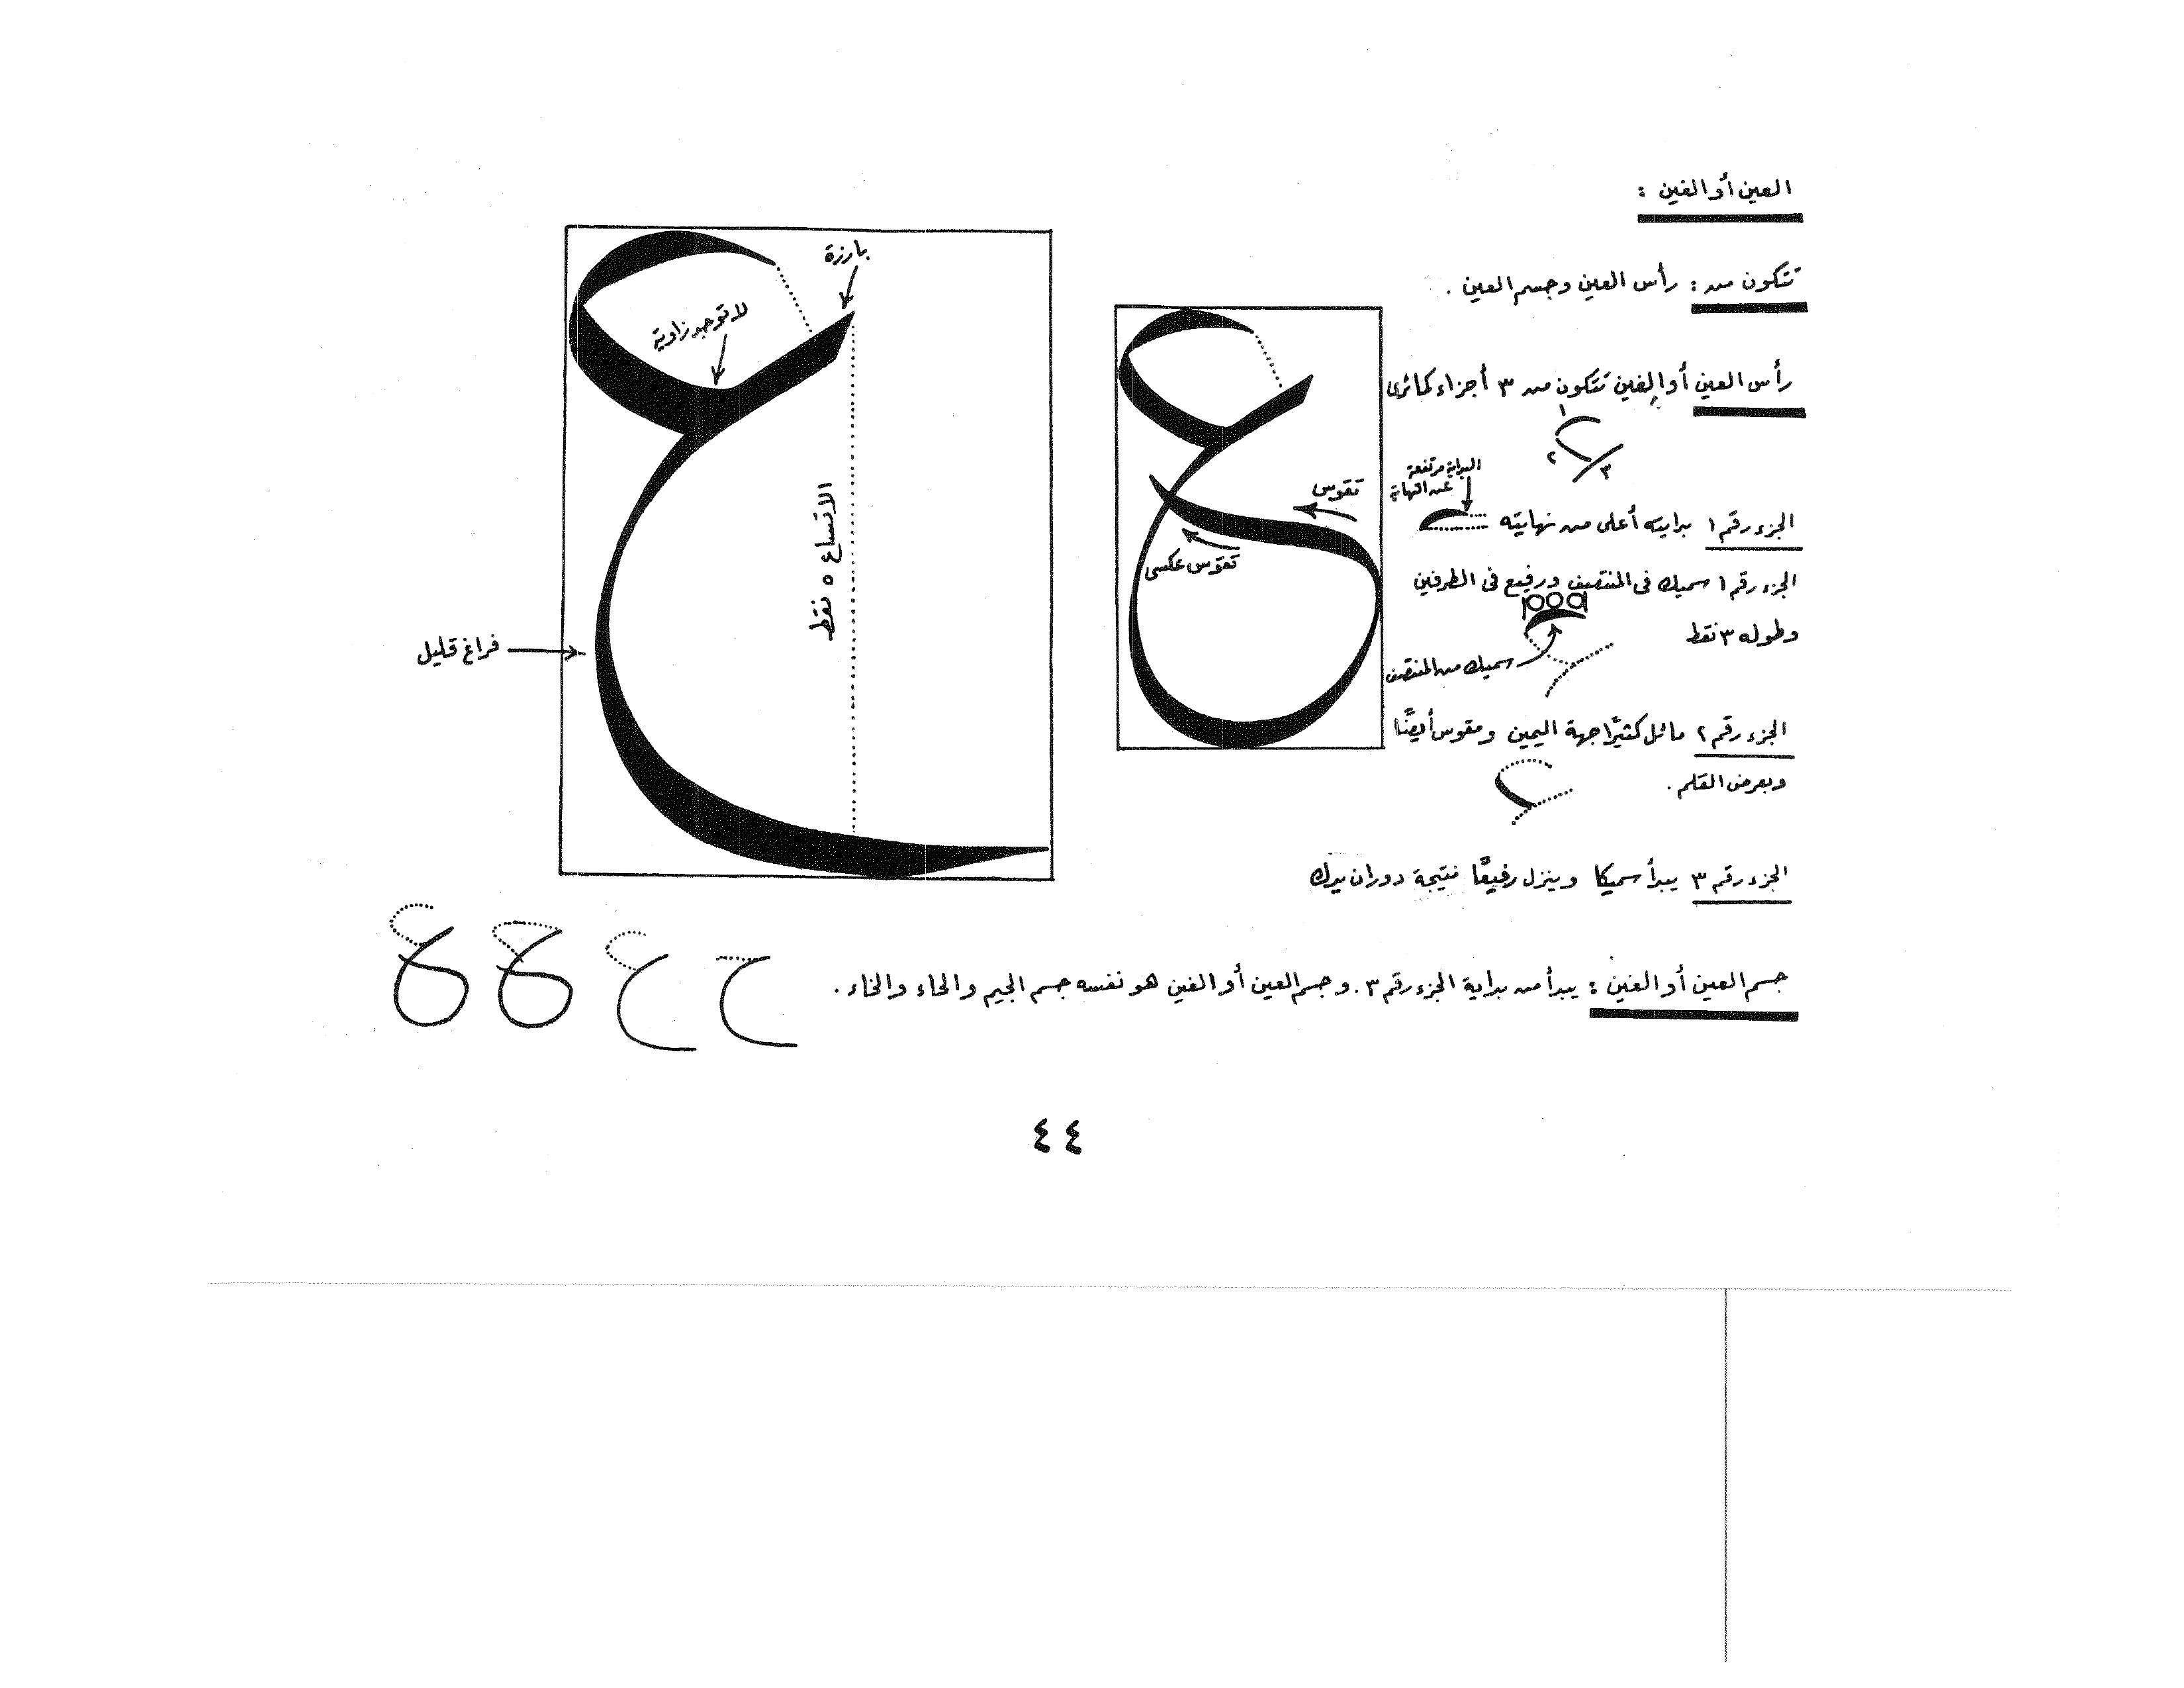 العين أو الغين :
تتكون من : رأس العين وجسم العين .
رأس العين أو الغين تتكون من ٣ أجزاء كما ترى
١
٢
٣
البداية مرتفعة
عن النهاية
الجزء رقم ١ بدايته أعلى من نهايته
الجزء رقم ١ سميك في المنتصف ورفيع في الطرفين
وطوله ٣ نقط
سميك من المنتصف
الجزء رقم ٢ مائل كثيرًا جهة اليمين ومقوس أيضًا
وبعرض القلم .
الجزء رقم ٣ يبدأ سميكا وينزل رفيعًا نتيجة دوران يدك
تقوس
تقوس عكسى
بارزة
لا توجد زاوية
الاتساع ٥ نقط
فراغ قليل
جسم العين أو الغين : يبدأ من بداية الجزء رقم ٣ . وجسم العين أو الغين هو نفسه جسم الجيم والحاء والخاء .
٤٤